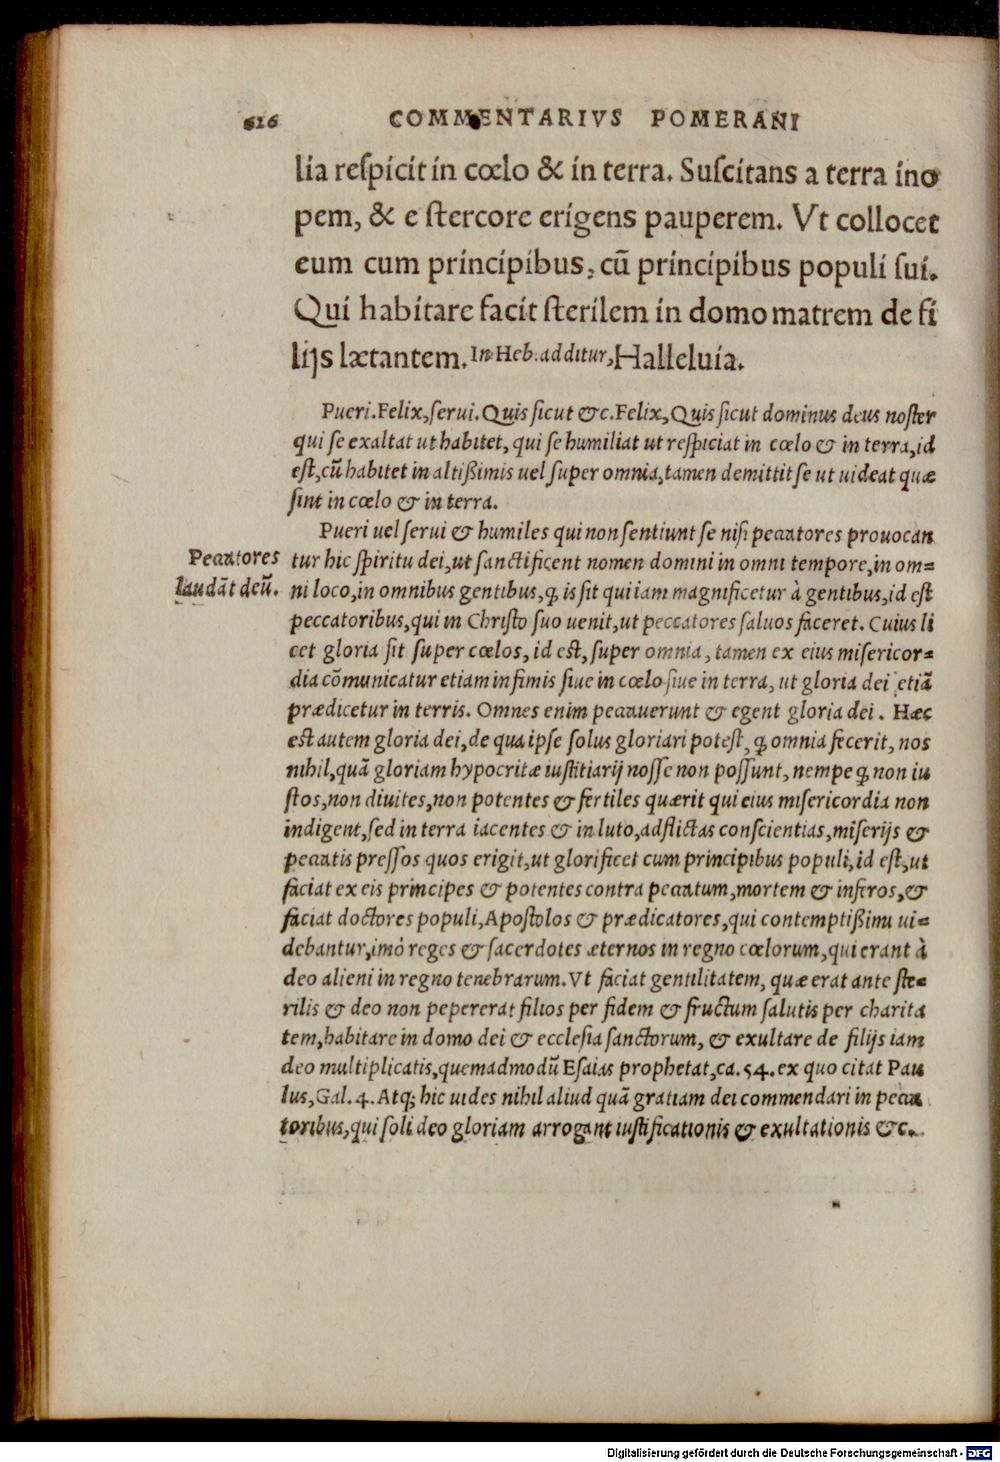 616 COMMENTARIVS POMERANI
lia reſpicit in cœlo & in terra. Suſcitans a terra ino
pem, & e ſtercore erigens pauperem. Vt collocet
eum cum principibus, cū principibus populi ſui.
Qui habitare facit ſterilem in domo matrem de fi
lijs lætantem. In Heb. additur, Halleluia.
Pueri. Felix, ſerui. Quis ſicut &c. Felix, Quis ſicut dominus deus noſter
qui ſe exaltat ut habitet, qui ſe humiliat ut reſpiciat in cœlo & in terra, id
eſt, cū habitet in altißimis uel ſuper omnia, tamen demittit ſe ut uideat quæ
ſint in cœlo & in terra.
Pueri uel ſerui & humiles qui non ſentiunt ſe niſi peccatores prouocan
Peccatores
tur hic ſpiritu dei, ut ſanctificent nomen domini in omni tempore, in om=
laudāt deū.
ni loco, in omnibus gentibus, ꝙ is ſit qui iam magnificetur à gentibus, id eſt
peccatoribus, qui in Chriſto ſuo uenit, ut peccatores ſaluos faceret. Cuius li
cet gloria ſit ſuper cœlos, id eſt, ſuper omnia, tamen ex eius miſericor=
dia cōmunicatur etiam infimis ſiue in cœlo ſiue in terra, ut gloria dei etiā
prædicetur in terris. Omnes enim peccauerunt & egent gloria dei. Hæc
eſt autem gloria dei, de qua ipſe ſolus gloriari poteſt, ꝙ omnia fecerit, nos
nihil, quā gloriam hypocritæ iuſtitiarij noſſe non poſſunt, nempe ꝙ non iu
ſtos, non diuites, non potentes & fertiles quærit qui eius miſericordia non
indigent, ſed in terra iacentes & in luto, adflictas conſcientias, miſerijs &
peccatis preſſos quos erigit, ut glorificet cum principibus populi, id eſt, ut
faciat ex eis principes & potentes contra peccatum, mortem & inferos, &
faciat doctores populi, Apoſtolos & prædicatores, qui contemptißimi ui=
debantur, imò reges & ſacerdotes æternos in regno cœlorum, qui erant à
deo alieni in regno tenebrarum. Vt faciat gentilitatem, quæ erat ante ſte=
rilis & deo non pepererat filios per fidem & fructum ſalutis per charita
tem, habitare in domo dei & eccleſia ſanctorum, & exultare de filijs iam
deo multiplicatis, quemadmodū Eſaias prophetat, ca. 54. ex quo citat Pau
lus, Gal. 4. Atq; hic uides nihil aliud quā gratiam dei commendari in pecca
toribus, qui ſoli deo gloriam arrogant iuſtificationis & exultationis &c.
Digitalisierung gefördert durch die Deutsche Forschungsgemeinschaft - DFG